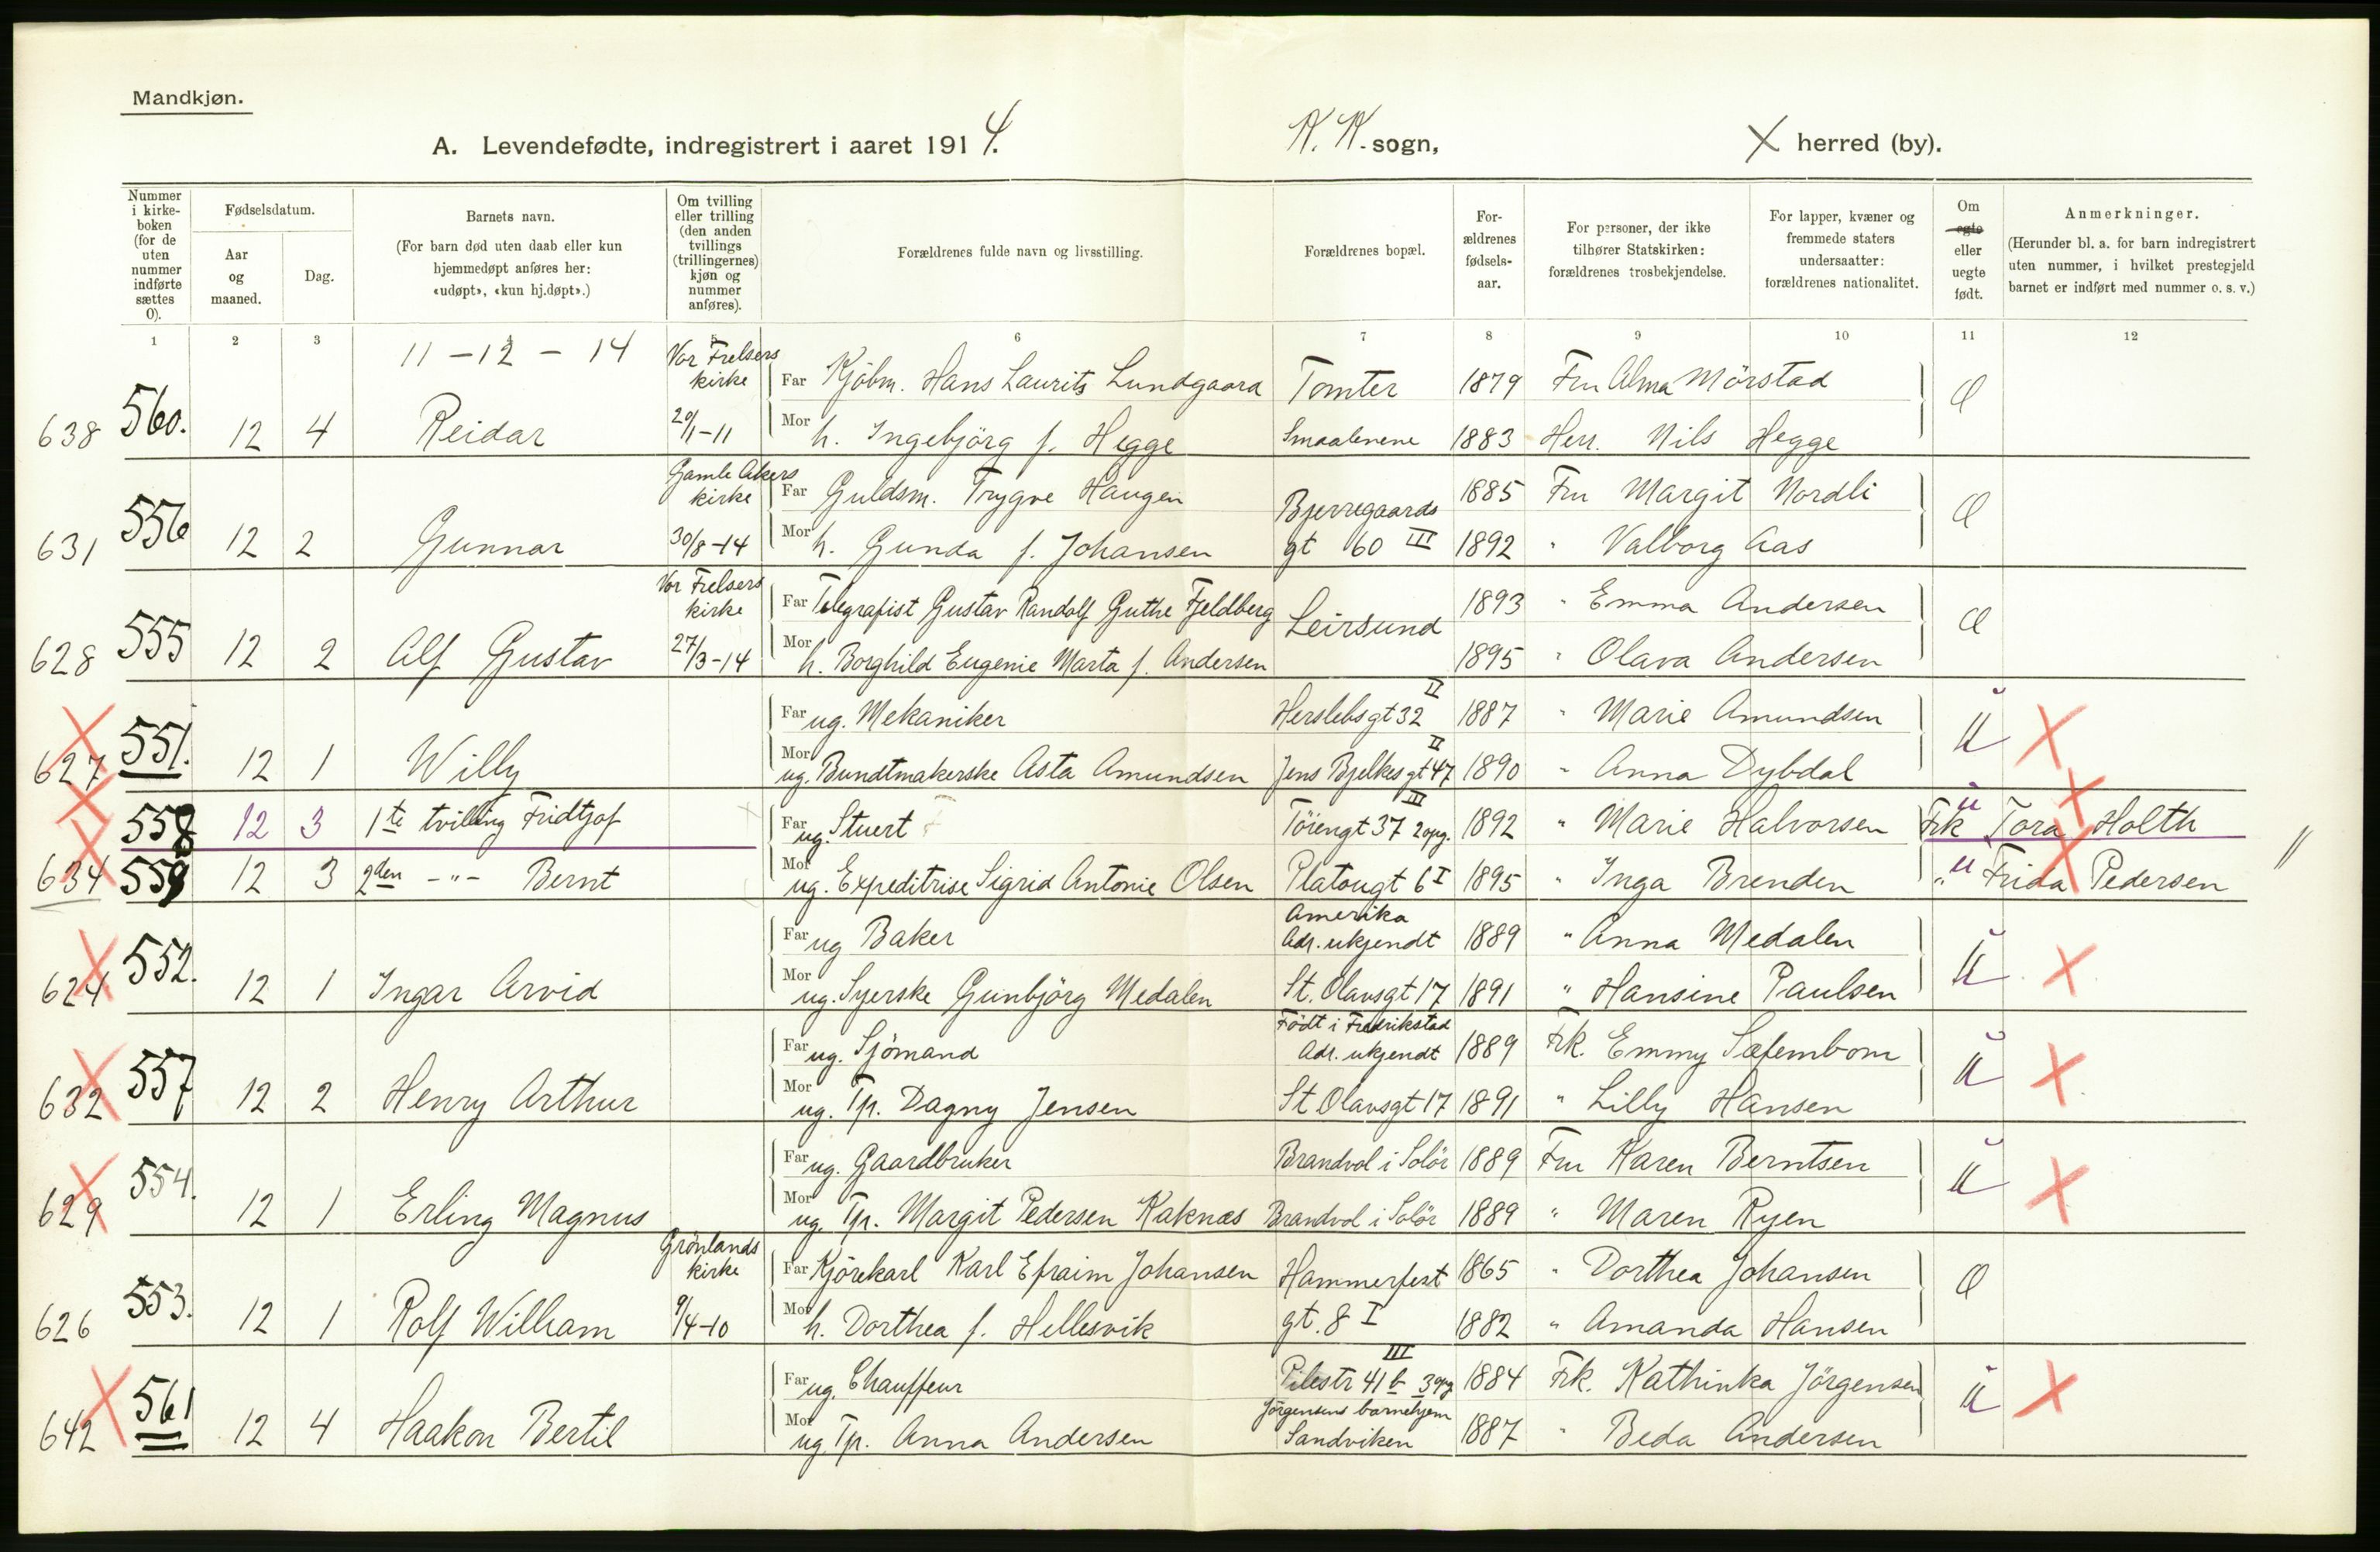 Mandkjøn.
A. Levendefødte, indregistrert i aaret 1914. K. K. sogn, X herred (by).
Nummer i kirke-boken (for de uten nummer indførte sættes 0).
Fødselsdatum.
Aar og maaned.
Dag.
Barnets navn.
(For barn død uten daab eller kun hjemmedøpt anføres her: «udøpt», «kun hj.døpt».)
Om tvilling eller trilling (den anden tvillings (trillingernes) kjøn og nummer anføres).
Forældrenes fulde navn og livsstilling.
Forældrenes bopæl.
For-ældrenes fødsels-aar.
For personer, der ikke tilhører Statskirken: forældrenes trosbekjendelse.
For lapper, kvæner og fremmede staters undersaatter: forældrenes nationalitet.
Om egte eller uegte født.
Anmerkninger.
(Herunder bl. a. for barn indregistrert uten nummer, i hvilket prestegjeld barnet er indført med nummer o. s. v.)
1 2 3 6 7 8 9 10 11 12
11 - 12 - 14
Vor Frelsers kirke Far Kjøbm. Hans Laurits Lundgaard Tomter 1879 Fru Alma Mörstad
638 560. 12 4 Reidar 20/1-11 Mor h. Ingebjörg f. Hegge Smaalenene 1883 Herr. Nils Hegge
Gamle Akers kirke Far Guldsm. Trygve Haugen Bjerregaards 1885 Fru Margit Nordli
631 556 12 2 Gunnar 30/8-14 Mor h. Gunda f. Johansen gt 60 III 1892 " Valborg Aas
Vor Frelsers kirke Far Telegrafist Gustav Randolf Guthe Fjeldberg Leirsund 1893 " Emma Andersen
628 555 12 2 Alf Gustav 27/3-14 Mor h. Borghild Eugenie Marta f. Andersen 1895 " Olava Andersen
Far ug. Mekaniker Herslebsgt 32 II 1887 " Marie Amundsen u
627 551. 12 1 Willy Mor ug. Bundtmakerske Asta Amundsen Jens Bjelkes gt 47 II 1890 " Anna Dybdal
558 12 3 1te tvilling Fridtjof Far ug. Stuert Töiengt 37 2opg. III 1892 " Marie Halvorsen u Frk Tora Holth
634 559 12 3 2den -"- Bernt Mor ug. Expeditrise Sigrid Antonie Olsen Platougt 6 I 1895 " Inga Brenden " u Frida Pedersen
Far ug Baker Amerika Adr. ukjendt 1889 " Anna Medalen u
624 552. 12 1 Ingar Arvid Mor ug. Syerske Gunbjörg Medalen St. Olavsgt 17 1891 " Hansine Paulsen
Far ug. Sjömand Födt i Fredrikstad Adr. ukjendt 1889 Frk. Emmy u
632 557 12 2 Henry Arthur Mor ug. Tp. Dagny Jensen St Olavsgt 17 1891 " Lilly Hansen
Far ug. Gaardbruker Brandvol i Solör 1889 Fru Karen Berntsen u
629 554. 12 1 Erling Magnus Mor ug. Tp. Margit Pedersen Kaknæs Brandvol i Solör 1889 " Maren Ryen
Grönlands kirke Far Kjörekarl Karl Efraim Johansen Hammerfest 1865 " Dorthea Johansen
626 553. 12 1 Rolf William 9/4-10 Mor h. Dorthea f. Hellesvik gt. 8 I 1882 " Amanda Hansen
Far ug. Chauffeur Pilestr 41 b 3opg III 1884 Frk. Kathinka Jörgensen u
642 561 12 4 Haakon Bertil Mor ug. Tp. Anna Andersen Jörgensens barnehjem Sandviken 1887 " Beda Andersen